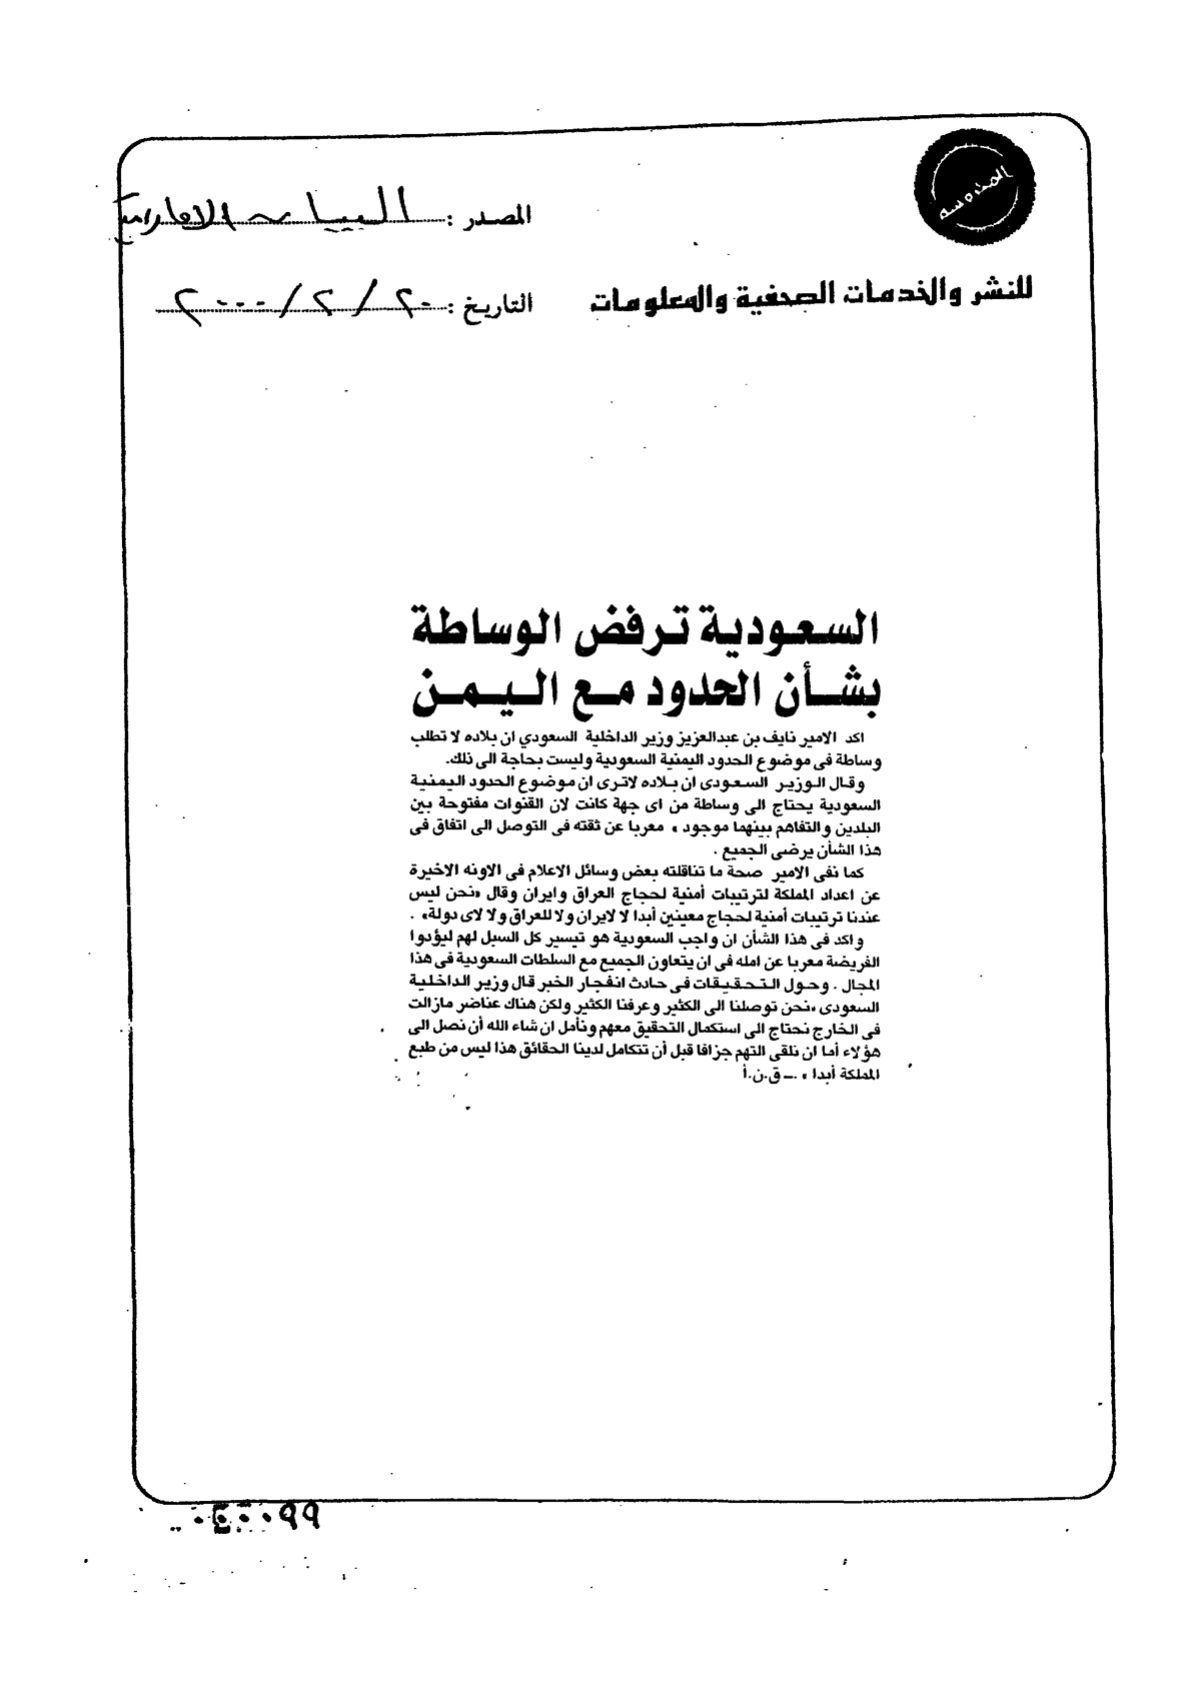 المصدر : البيان الاماراتية
للنشر والخدمات الصحفية والمعلومات
التاريخ : ٢٠ / ٢ / ٢٠٠٠
السعودية ترفض الوساطة
بشأن الحدود مع اليمن
اكد الامير نايف بن عبدالعزيز وزير الداخلية السعودي ان بلاده لا تطلب
وساطة فى موضوع الحدود اليمنية السعودية وليست بحاجة الى ذلك.
وقال الوزير السعودى ان بلاده لاترى ان موضوع الحدود اليمنية
السعودية يحتاج الى وساطة من اى جهة كانت لان القنوات مفتوحة بين
البلدين والتفاهم بينهما موجود » معربا عن ثقته فى التوصل الى اتفاق فى
هذا الشأن يرضى الجميع .
كما نفى الامير صحة ما تناقلته بعض وسائل الاعلام فى الاونه الاخيرة
عن اعداد المملكة لترتيبات أمنية لحجاج العراق وايران وقال «نحن ليس
عندنا ترتيبات أمنية لحجاج معينين أبدا لا لايران ولا للعراق ولا لاى دولة» .
واكد فى هذا الشأن ان واجب السعودية هو تيسير كل السبل لهم ليؤدوا
الفريضة معربا عن امله فى ان يتعاون الجميع مع السلطات السعودية فى هذا
المجال . وحول التحقيقات فى حادث انفجار الخبر قال وزير الداخلية
السعودى «نحن توصلنا الى الكثير وعرفنا الكثير ولكن هناك عناضر مازالت
فى الخارج نحتاج الى استكمال التحقيق معهم ونأمل ان شاء الله أن نصل الى
هؤلاء أما ان نلقى التهم جزافا قبل أن تتكامل لدينا الحقائق هذا ليس من طبع
المملكة أبدا » .ــ ق.ن.أ